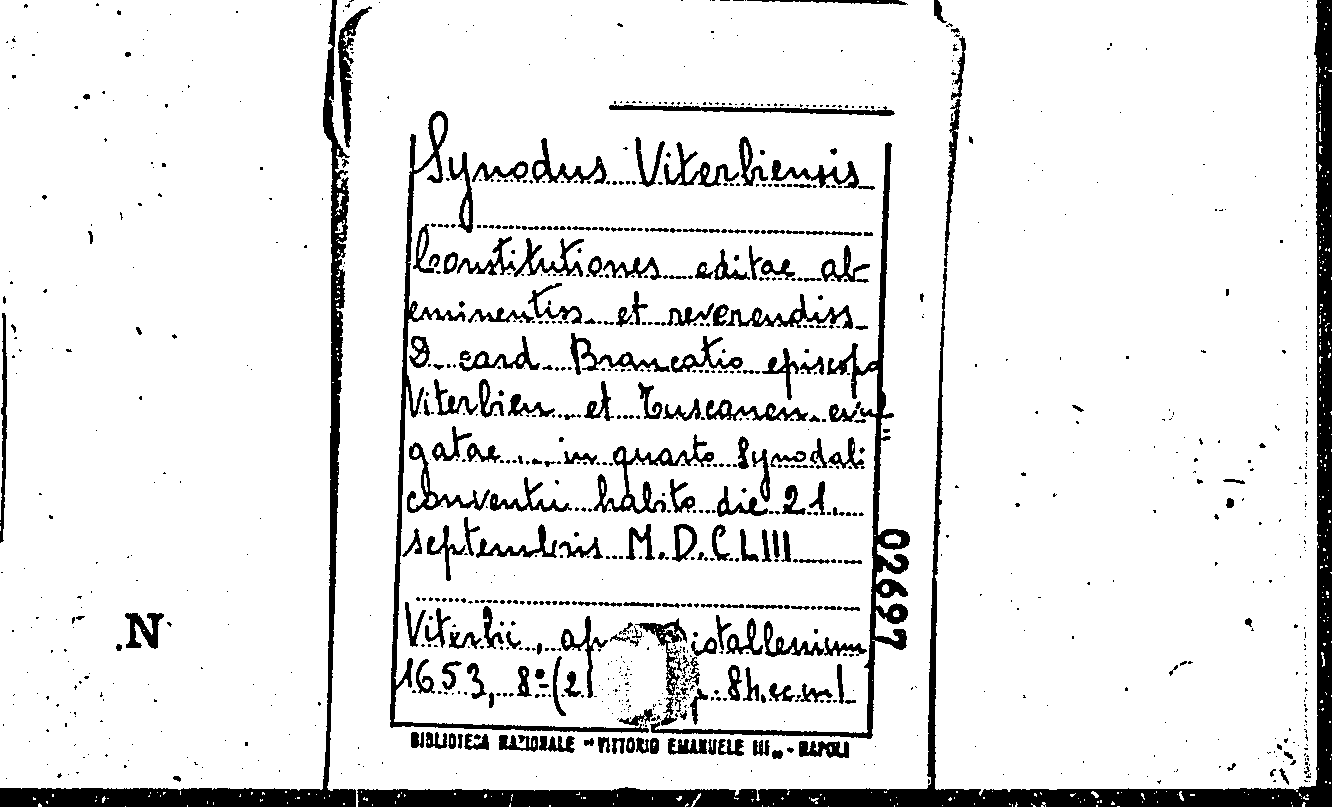 Synodus Viterbiensis
Constitutiones editae ab
eminentiss. et reverendiss.
D. card. Brancatio episcopo
Viterbien. et Tuscanen. evul
gatae ... in quarto Synodali
conventu habito die 21.
septembris M.D.CLIII
Viterbii, ap istallensium
1653, 8º (21 8h.
BIBLIOTECA NAZIONALE "VITTORIO EMANUELE III„ - NAPOLI
02697
.N